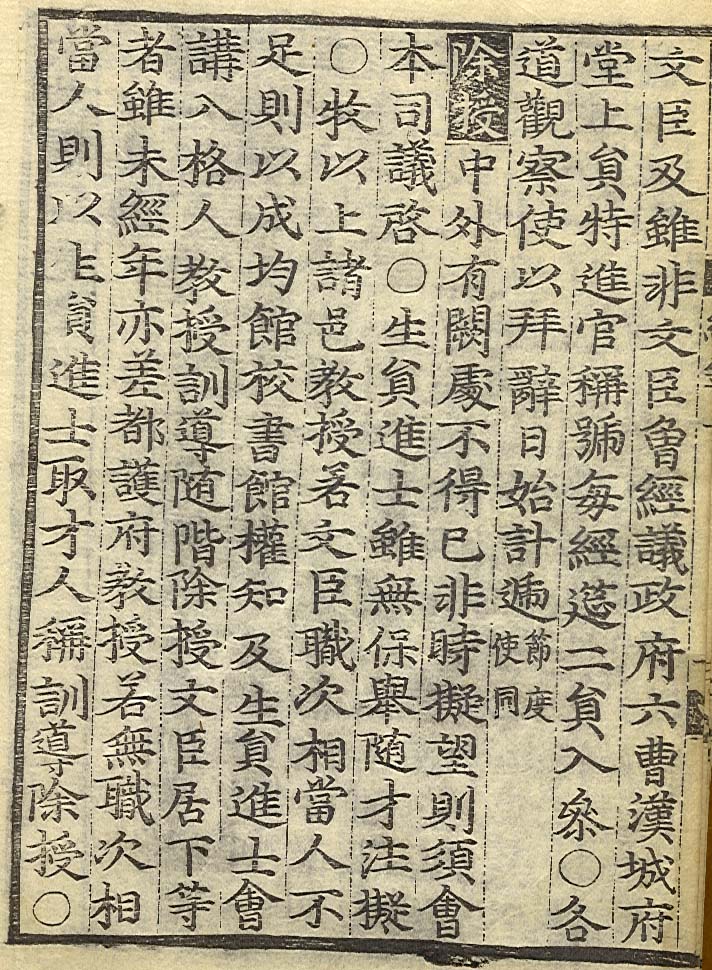 文臣及雖非文臣曾經議政府六曹漢城府
堂上貟特進官稱號每經筵二貟入叅○各
道觀察使以拜辭日始計遞節度使同
除授中外有闕處不得已非時擬望則須會
本司議啓○生貟進士雖無保舉随才注擬
○牧以上諸邑教授若文臣職次相當人不
足則以成均館校書館權知及生貟進士會
講入格人教授訓導随階除授文臣居下等
者雖未經年亦差都護府教授若無職次相
當人則以生貟進士取才人稱訓導除授○